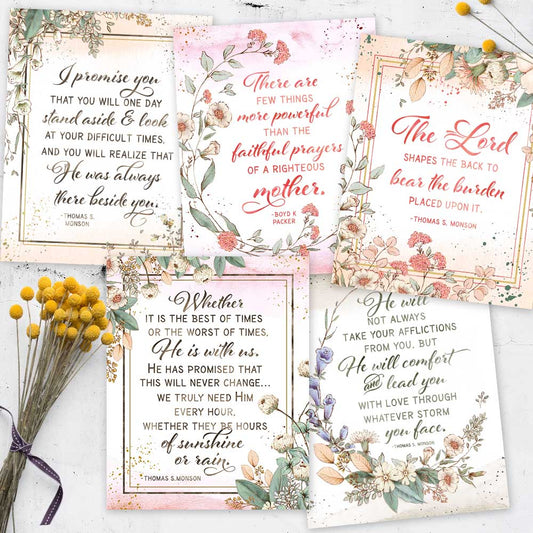 I promise you
THAT YOU WILL ONE DAY
stand aside & look
AT YOUR DIFFICULT TIMES,
AND YOU WILL REALIZE THAT
He was always
there beside you.
-THOMAS S.
MONSON
There are
FEW THINGS
more powerful
THAN THE
faithful prayers
OF A RIGHTEOUS
mother.
-BOYD K
PACKER
The Lord
SHAPES THE BACK TO
bear the burden
PLACED UPON IT.
-THOMAS S. MONSON
Whether
IT IS THE BEST OF TIMES
OR THE WORST OF TIMES,
He is with us.
HE HAS PROMISED THAT
THIS WILL NEVER CHANGE...
WE TRULY NEED HIM
EVERY HOUR,
WHETHER THEY BE HOURS
of sunshine
or rain.
THOMAS S. MONSON
He will
NOT ALWAYS
TAKE YOUR AFFLICTIONS
FROM YOU, BUT
He will comfort
and lead you
WITH LOVE THROUGH
WHATEVER STORM
you face.
-THOMAS S. MONSON